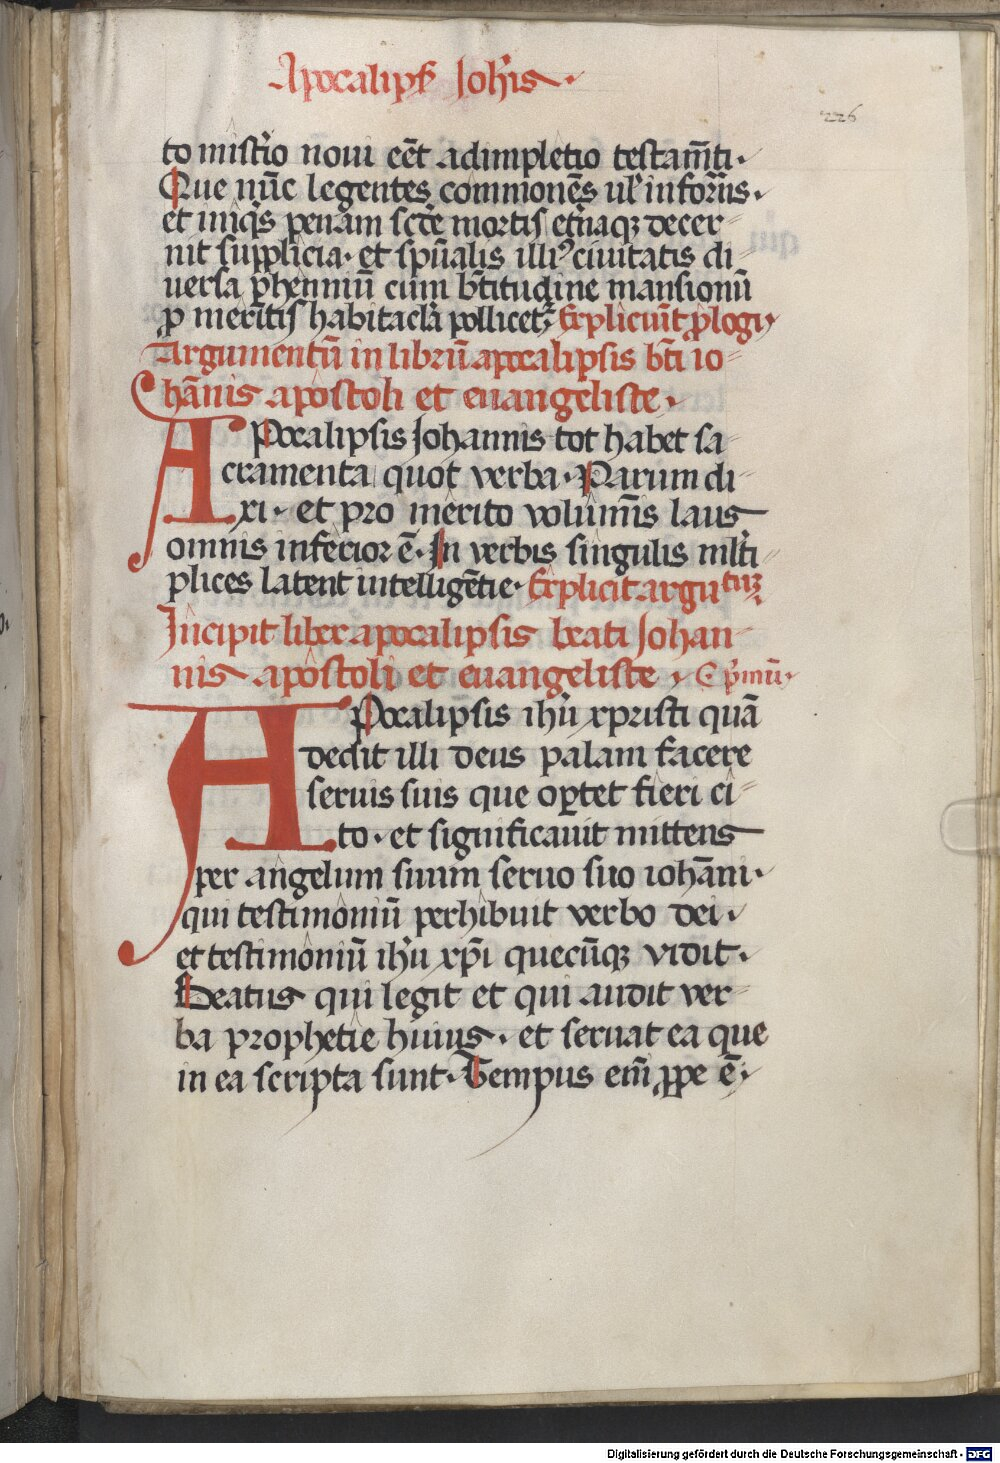 Apocalips̄ Joh'is ·
226
to mist'io noui eēt adimpletio testam̄ti ·
Que nūc legentes commonēs ul' inform̄s ·
et iniq's penam scd'e mortis et'naqꝫ decer⸗
nit supplicia · et sp̄ualis illi9 ciuitatis di⸗
uersa p̱henniū cum b'titudine mansionū
ꝓ merītis habitac'la pollicet'. Explicīut p'logi
Argumentū in librū apocalipsis b'ti io⸗
hānis apostoli et euangeliste ·
APocalipsis Johannis tot habet sa⸗
cramenta quot verba · Parum di⸗
xi · et pro merito volum̄is laus
omnis inferior ē · In verbis singulis ml'ti⸗
plices latent intelligētie · Explicit argutuꝫ
Jncipit liber apocalipsis beati Johan⸗
nis apostoli et euangeliste · C p'mū ·
APocalipsis ih'u xpristi quā
dedit illi deus palam facere
seruis suis que oꝑtet fieri ci⸗
to · et significauit mittens
per angelum suum seruo suo iohāni ·
qui testimoniū perhibuit verbo dei ·
et testimoniū ih'u xp̄i quecūqꝫ vidit ·
Beatus qui legit et qui audit ver⸗
ba prophetie huius · et seruat ea que
in ea scripta sunt · Tempus em̄ ꝓpe ē ·
Digitalisierung gefördert durch die Deutsche Forschungsgemeinschaft - DFG